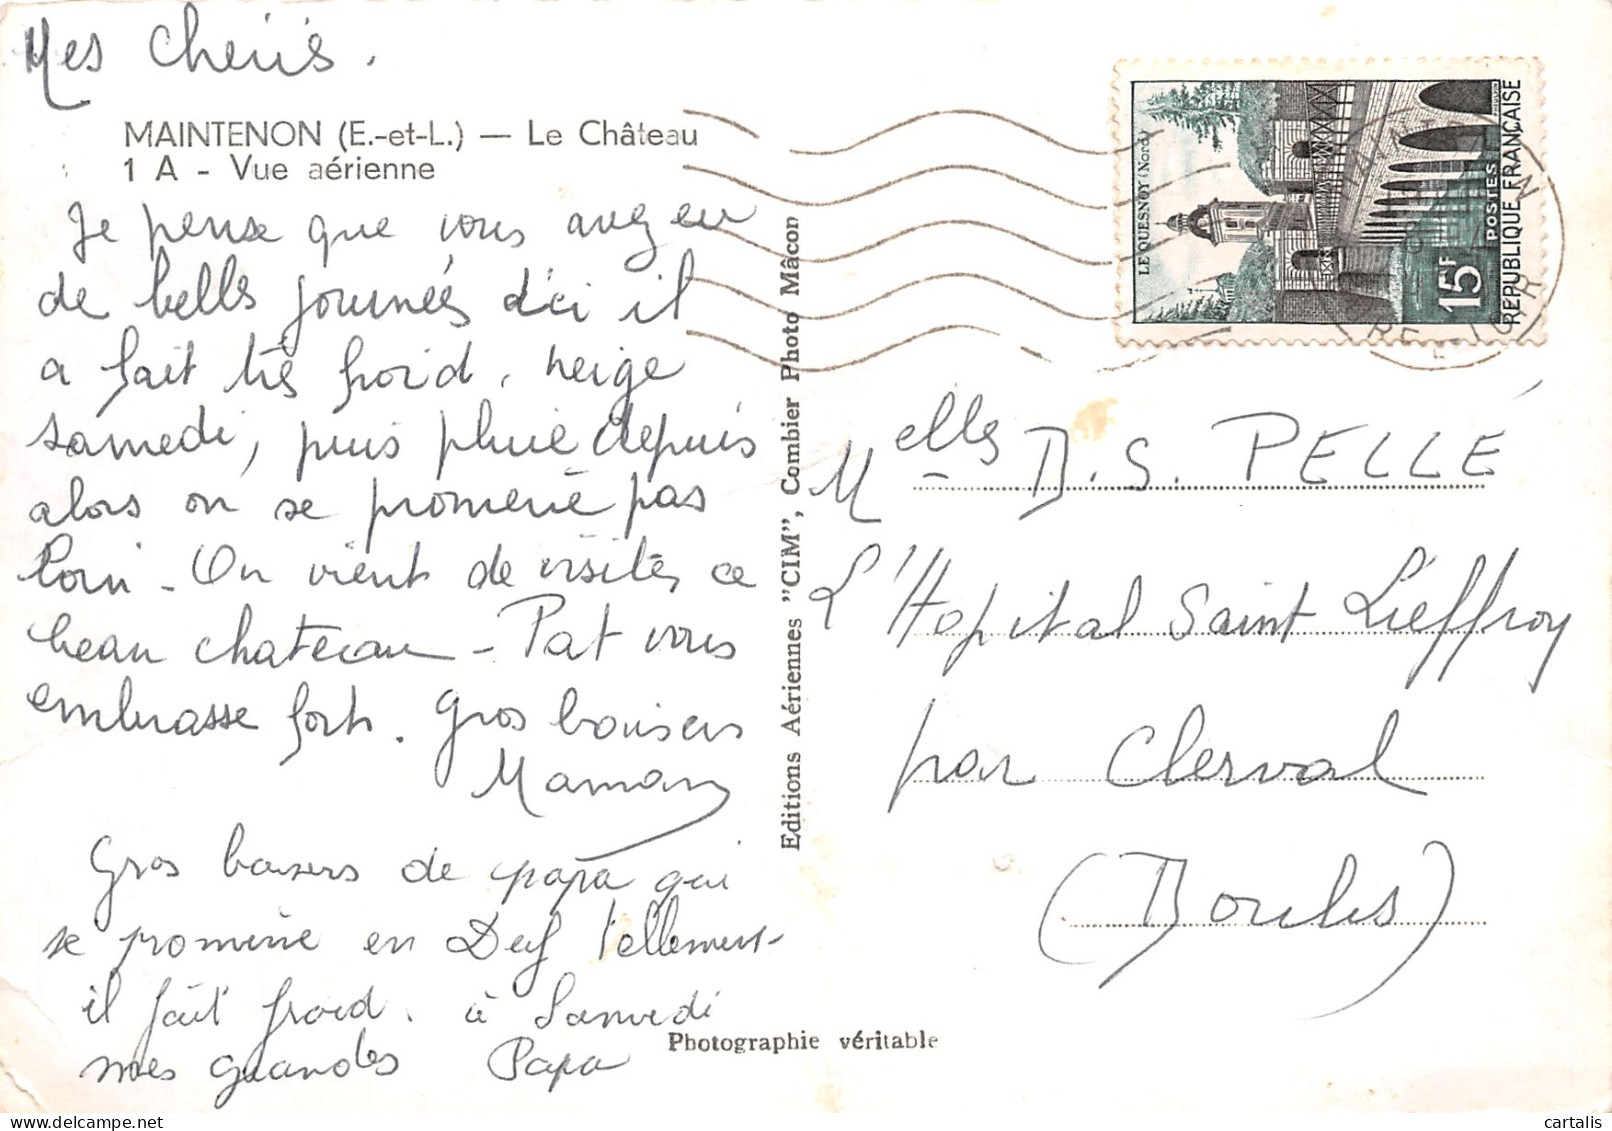 Mes Chéris.
MAINTENON (E.-et-L.) — Le Château
1 A - Vue aérienne
Je pense que vous avez eu
de belles journées d'ici il
a fait très froid, neige
samedi, puis pluie depuis
alors on se promène pas
loin - On vient de visiter ce
beau chateau - Pat vous
embrasse fort. Gros baisers
Maman
Gros baisers de papa qui
se promène en Deuf tellement
il fait froid. à Samedi
mes grandes Papa
Editions Aériennes "CIM", Combier Photo Mâcon
Photographie véritable
LE QUESNOY (Nord)
15F
POSTES
REPUBLIQUE FRANÇAISE
Melles D. S. PELLÉ
L'Hopital Saint Lieffroy
par Clerval
(Doubs)
cartalis